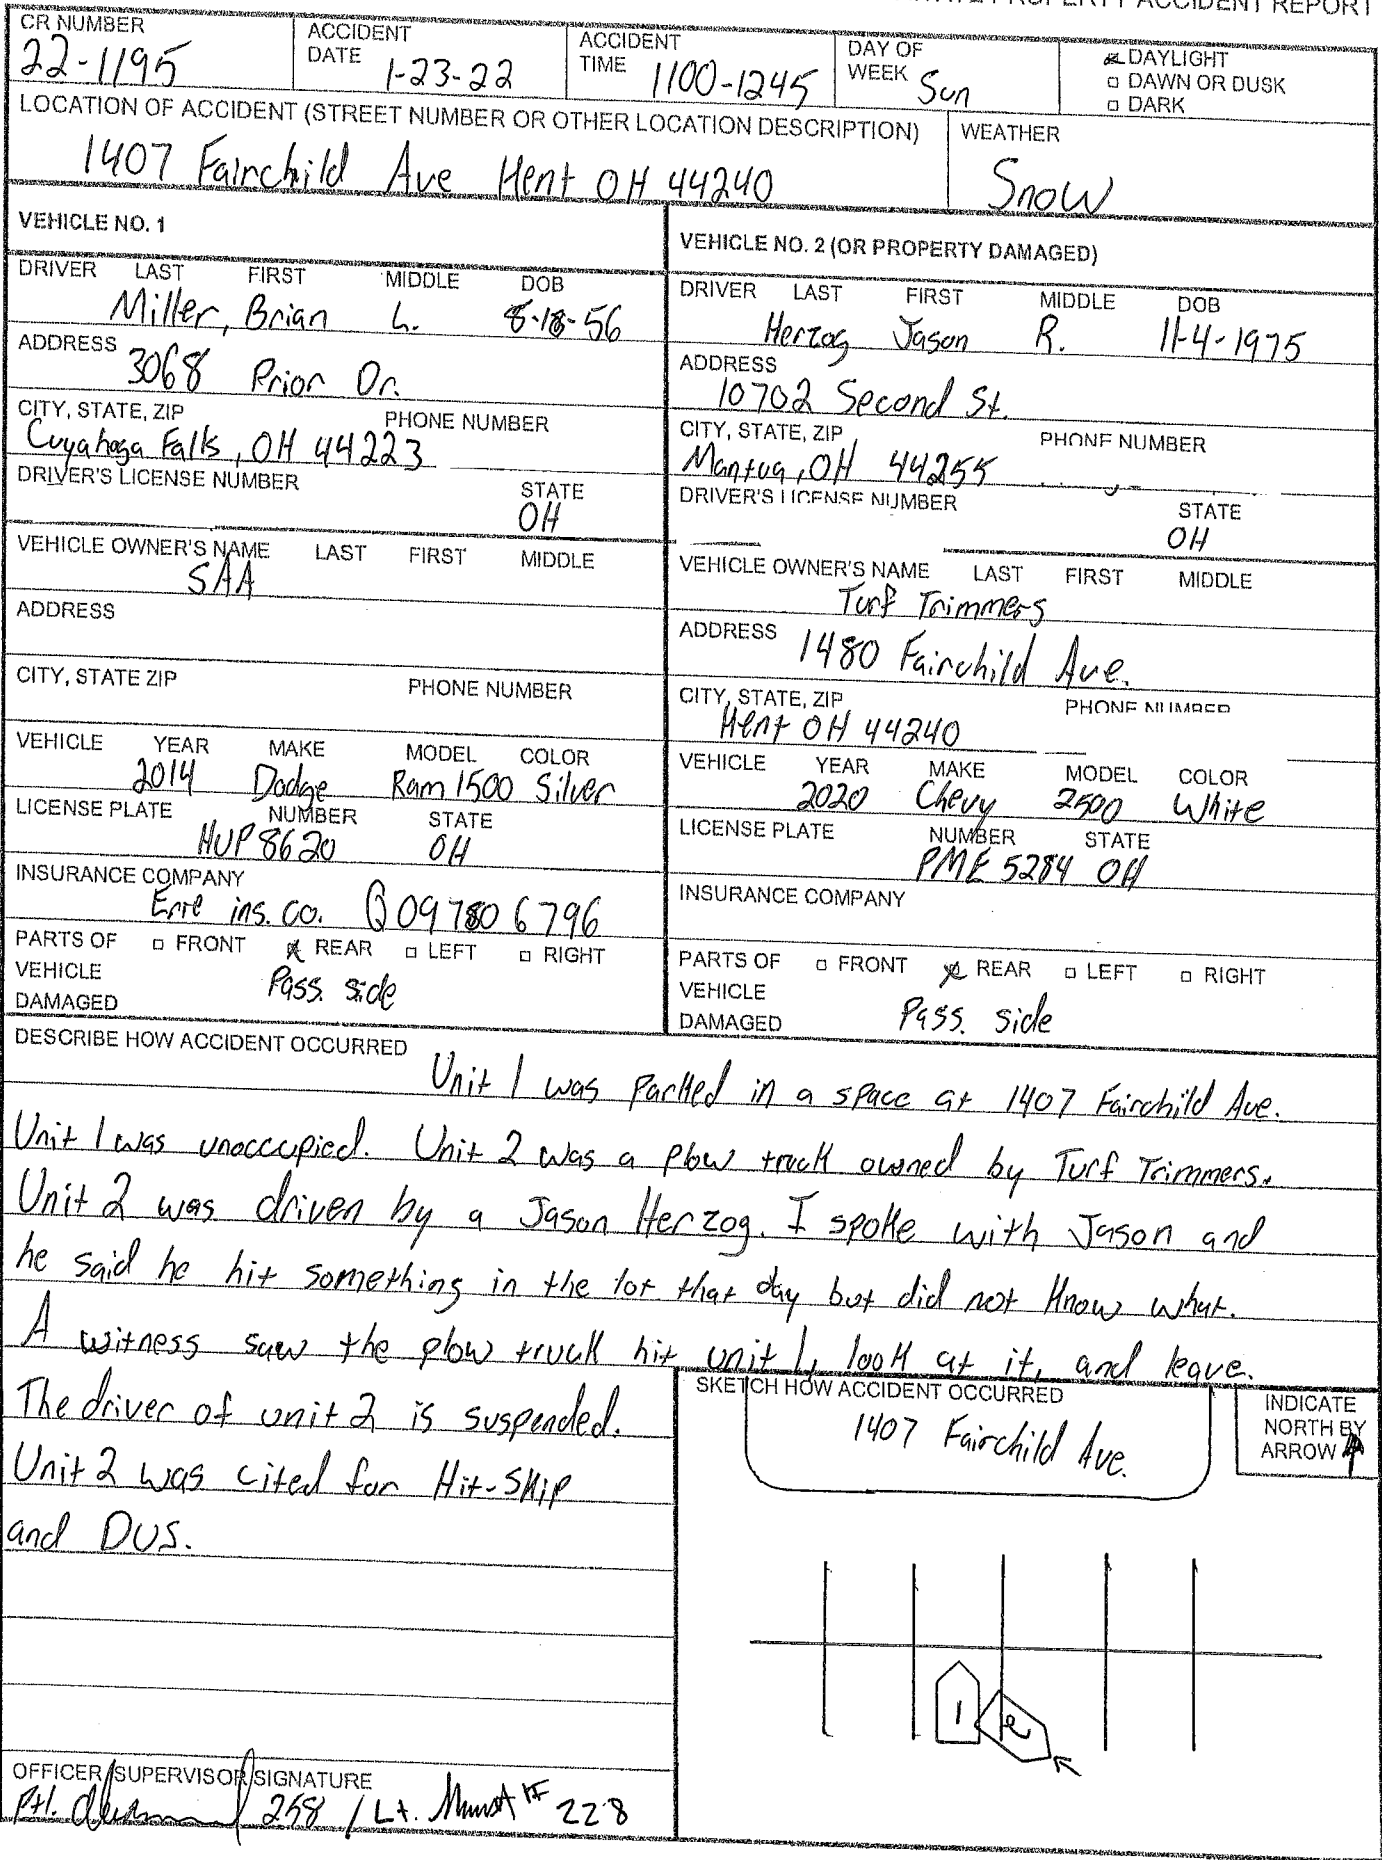 ACCIDENT REPORT
CR NUMBER ACCIDENT DATE ACCIDENT TIME DAY OF WEEK DAYLIGHT
22-1195 1-23-22 1100-1245 Sun DAWN OR DUSK
DARK
LOCATION OF ACCIDENT (STREET NUMBER OR OTHER LOCATION DESCRIPTION) WEATHER
1407 Fairchild Ave Kent OH 44240 Snow
VEHICLE NO. 1
DRIVER LAST FIRST MIDDLE DOB
Miller, Brian L. 8-18-56
ADDRESS 3068 Prior Dr.
CITY, STATE, ZIP PHONE NUMBER
Cuyahoga Falls, OH 44223
DRIVER'S LICENSE NUMBER STATE
OH
VEHICLE OWNER'S NAME LAST FIRST MIDDLE
SAA
ADDRESS
CITY, STATE ZIP PHONE NUMBER
VEHICLE YEAR MAKE MODEL COLOR
2014 Dodge Ram 1500 Silver
LICENSE PLATE NUMBER STATE
HUP 8620 OH
INSURANCE COMPANY
Erie ins. co. Q097806796
PARTS OF VEHICLE DAMAGED FRONT REAR LEFT RIGHT
Pass. side
VEHICLE NO. 2 (OR PROPERTY DAMAGED)
DRIVER LAST FIRST MIDDLE DOB
Herzog Jason R. 11-4-1975
ADDRESS
10702 Second St.
CITY, STATE, ZIP PHONE NUMBER
Mantua, OH 44255
DRIVER'S LICENSE NUMBER STATE
OH
VEHICLE OWNER'S NAME LAST FIRST MIDDLE
Turf Trimmers
ADDRESS 1480 Fairchild Ave.
CITY, STATE, ZIP PHONE NUMBER
Kent OH 44240
VEHICLE YEAR MAKE MODEL COLOR
2020 Chevy 2500 White
LICENSE PLATE NUMBER STATE
PME 5284 OH
INSURANCE COMPANY
PARTS OF VEHICLE DAMAGED FRONT REAR LEFT RIGHT
Pass. side
DESCRIBE HOW ACCIDENT OCCURRED
Unit 1 was parked in a space at 1407 Fairchild Ave.
Unit 1 was unoccupied. Unit 2 was a plow truck owned by Turf Trimmers.
Unit 2 was driven by a Jason Herzog. I spoke with Jason and
he said he hit something in the lot that day but did not know what.
A witness saw the plow truck hit unit 1, look at it, and leave.
The driver of unit 2 is suspended.
Unit 2 was cited for Hit-Skip
and DUS.
SKETCH HOW ACCIDENT OCCURRED
1407 Fairchild Ave.
INDICATE
NORTH BY
ARROW
1 2
OFFICER/SUPERVISOR/SIGNATURE
Ptl. 258 / Lt. 228